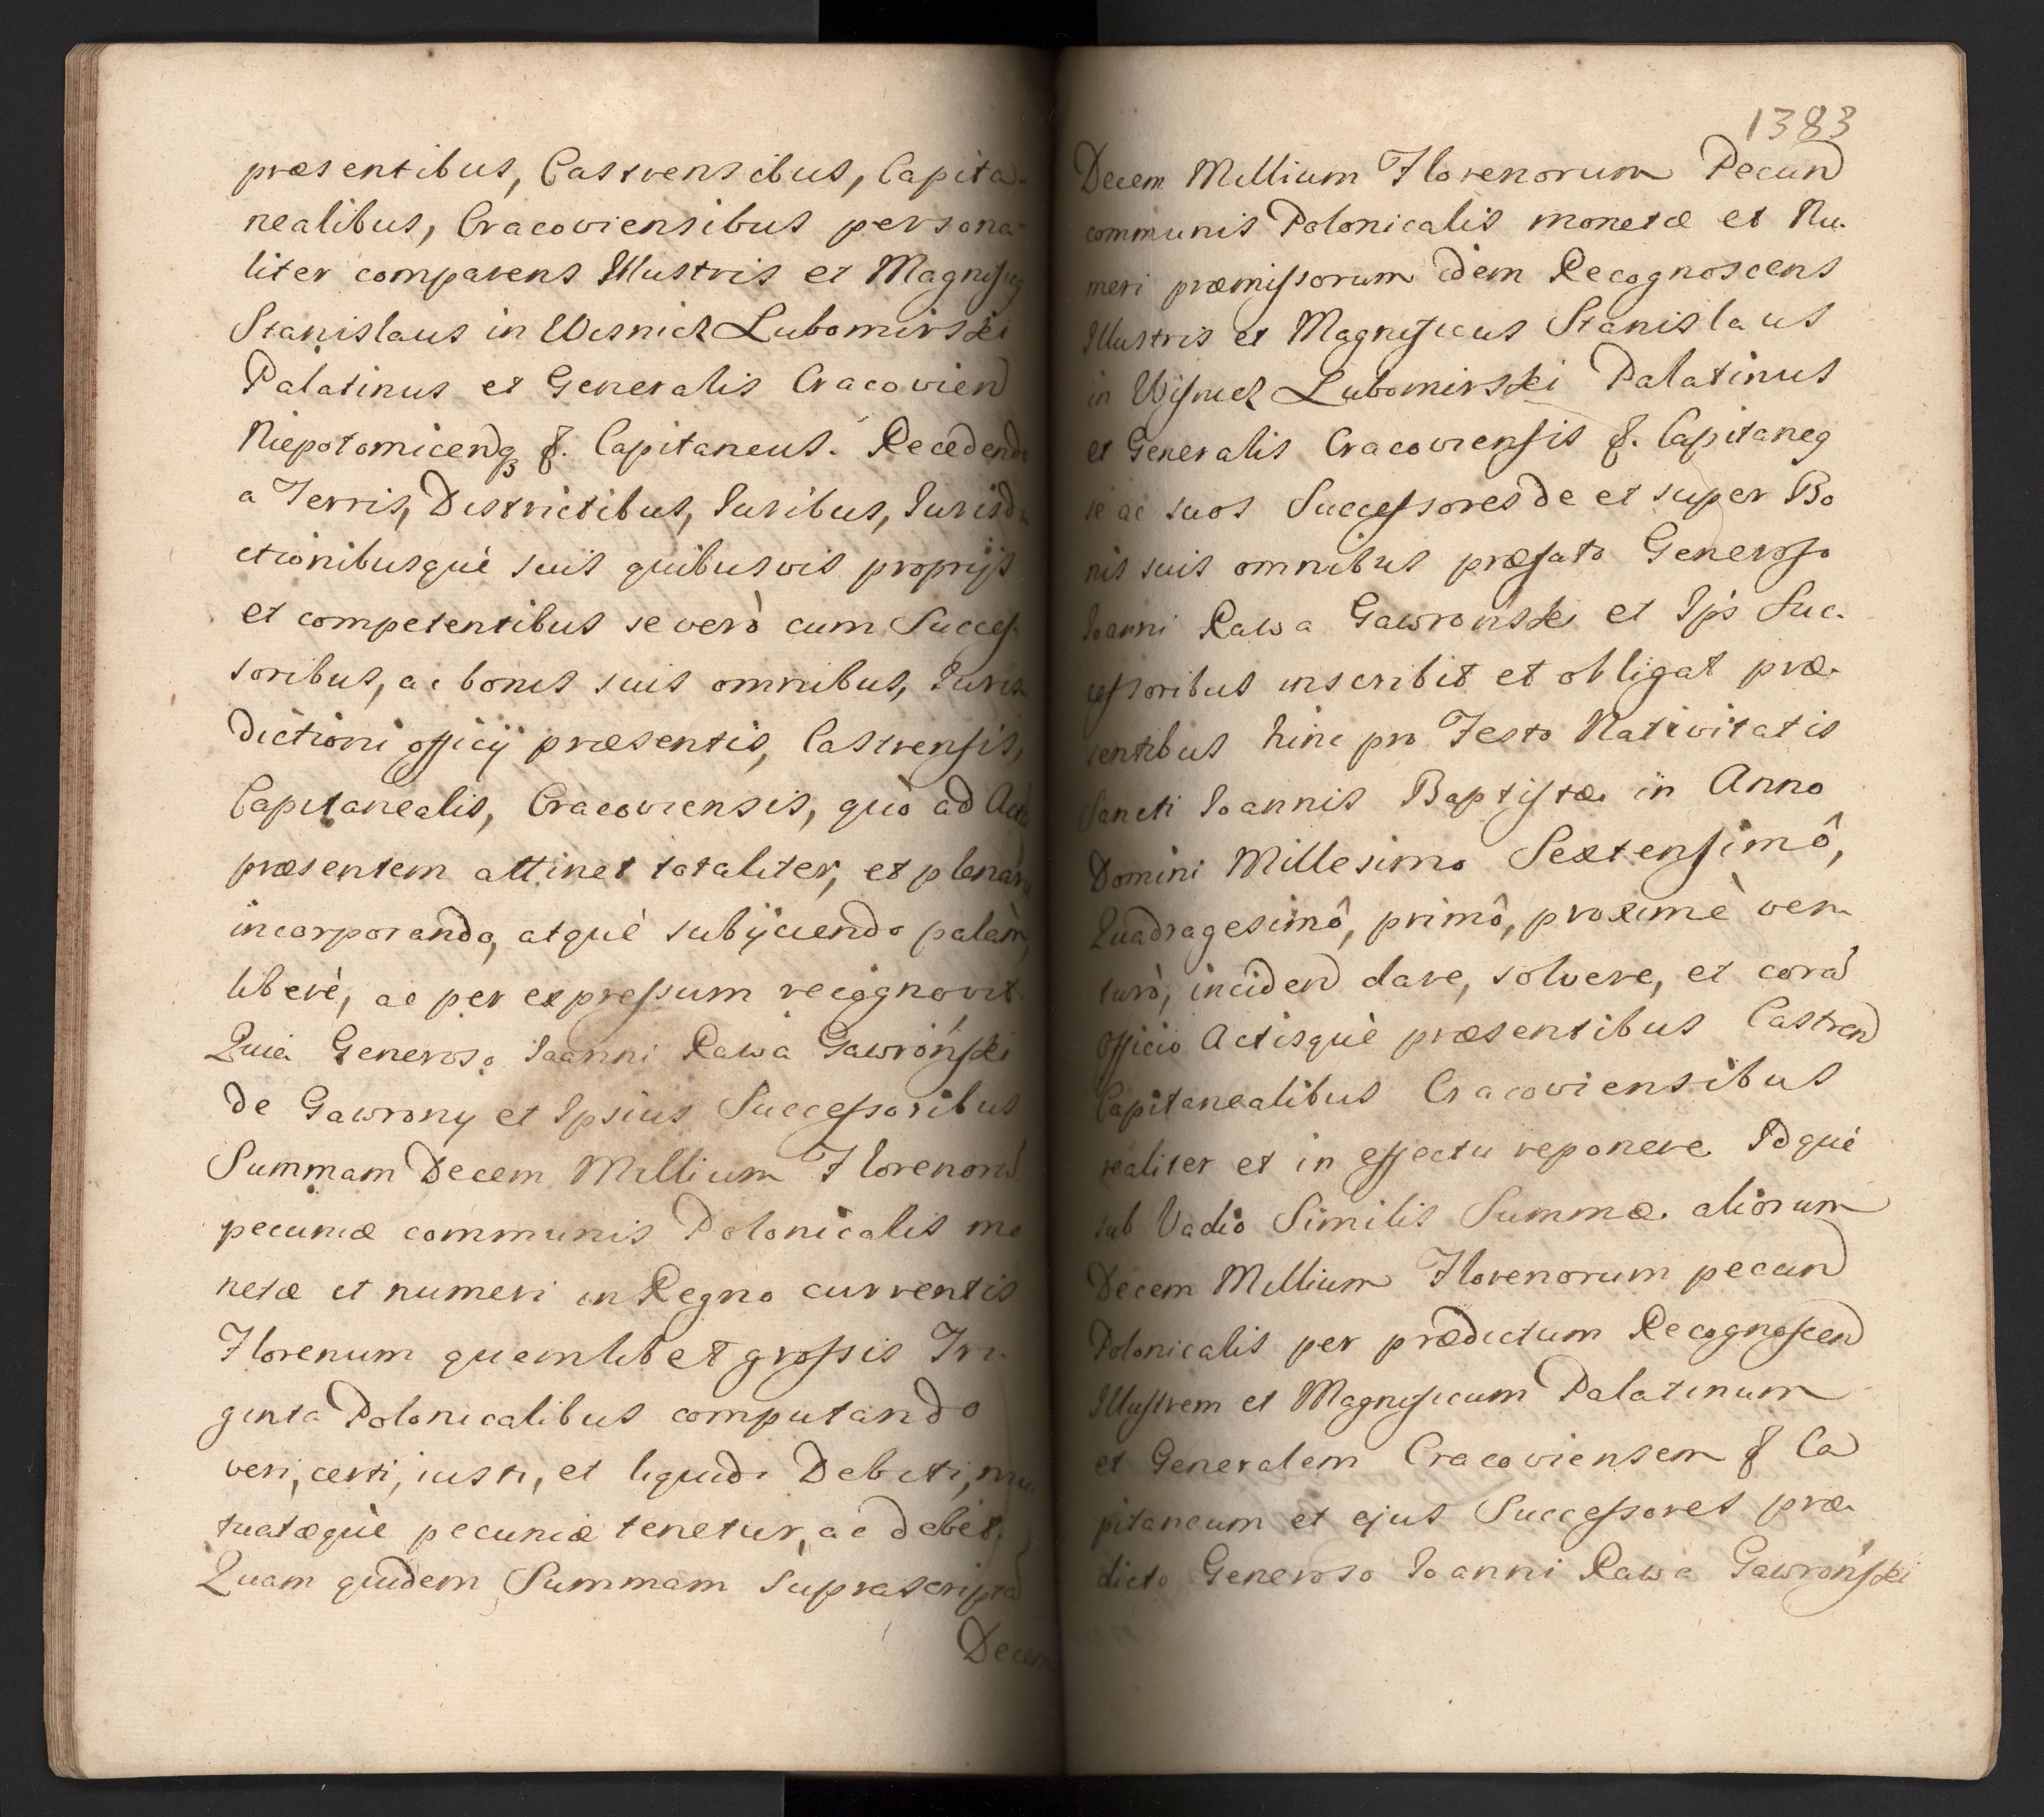 præsentibus, Castrensibus, Capita-
nealibus, Cracoviensibus persona-
liter comparens Illustris et Magnificq
Stanislaus in Wisnicz Lubomirski
Palatinus et Generalis Cracovien
Niepotomicenq & Capitaneus. Recedendo
a Terris, Districtibus, Iuribus, Iurisdi
ctionibusquè suis quibusvis proprijs
et competentibus se verò cum Succes-
soribus, ac bonis suis omnibus, Iuris
dictioni officij præsentis, Castrensis,
Capitanealis, Cracoviensis, quò ad Actū
præsentem attinet totaliter, et plenarie
incorporando, atquè subijciendo palàm,
liberè, ac per expressum recognovit.
Quia Generoso Ioanni Rawa Gawroński
de Gawrony et Ipsius Successoribus
Summam Decem Millium Florenorū
pecuniæ communis Polonicalis mo
netæ et numeri in Regno currentis
Florenum quemlibet grossis Tri-
ginta Polonicalibus computando
veri, certi, iusti, et liquidi Debiti, mu-
tuatæquè pecuniæ tenetur, ac debet.
Quam quidem Summam suprascriptā
Decem
1383
Decem Millium Florenorum Pecun
communis Polonicalis monetæ et Nu-
meri præmissorum idem Recognoscens
Illustris et Magnificus Stanislaus
in Wisnicz Lubomirski Palatinus
et Generalis Cracoviensis & Capitaneq
se ac suos Successores de et super Bo
nis suis omnibus præfato Generoso
Ioanni Rawa Gawronski et Ips Suc-
cessoribus inscribit et obligat præ-
sentibus hinc pro Festo Nativitatis
Sancti Ioannis Baptistæ in Anno
Domini Millesimo Sextensimô,
Quadragesimô, primô, proximè ven-
turò, inciden dare, solvere, et corā
officio Actisquè præsentibus Castren
Capitanealibus Cracoviensibus
realiter et in effectu reponere Idquè
sub Vadio Similis Summæ aliorum
Decem Millium Florenorum pecun
Polonicalis per prædictum Recognoscen
Illustrem et Magnificum Palatinum
et Generalem Cracoviensem & Ca
pitaneum et ejus Successores præ-
dicto Generoso Ioanni Rawa Gawroński